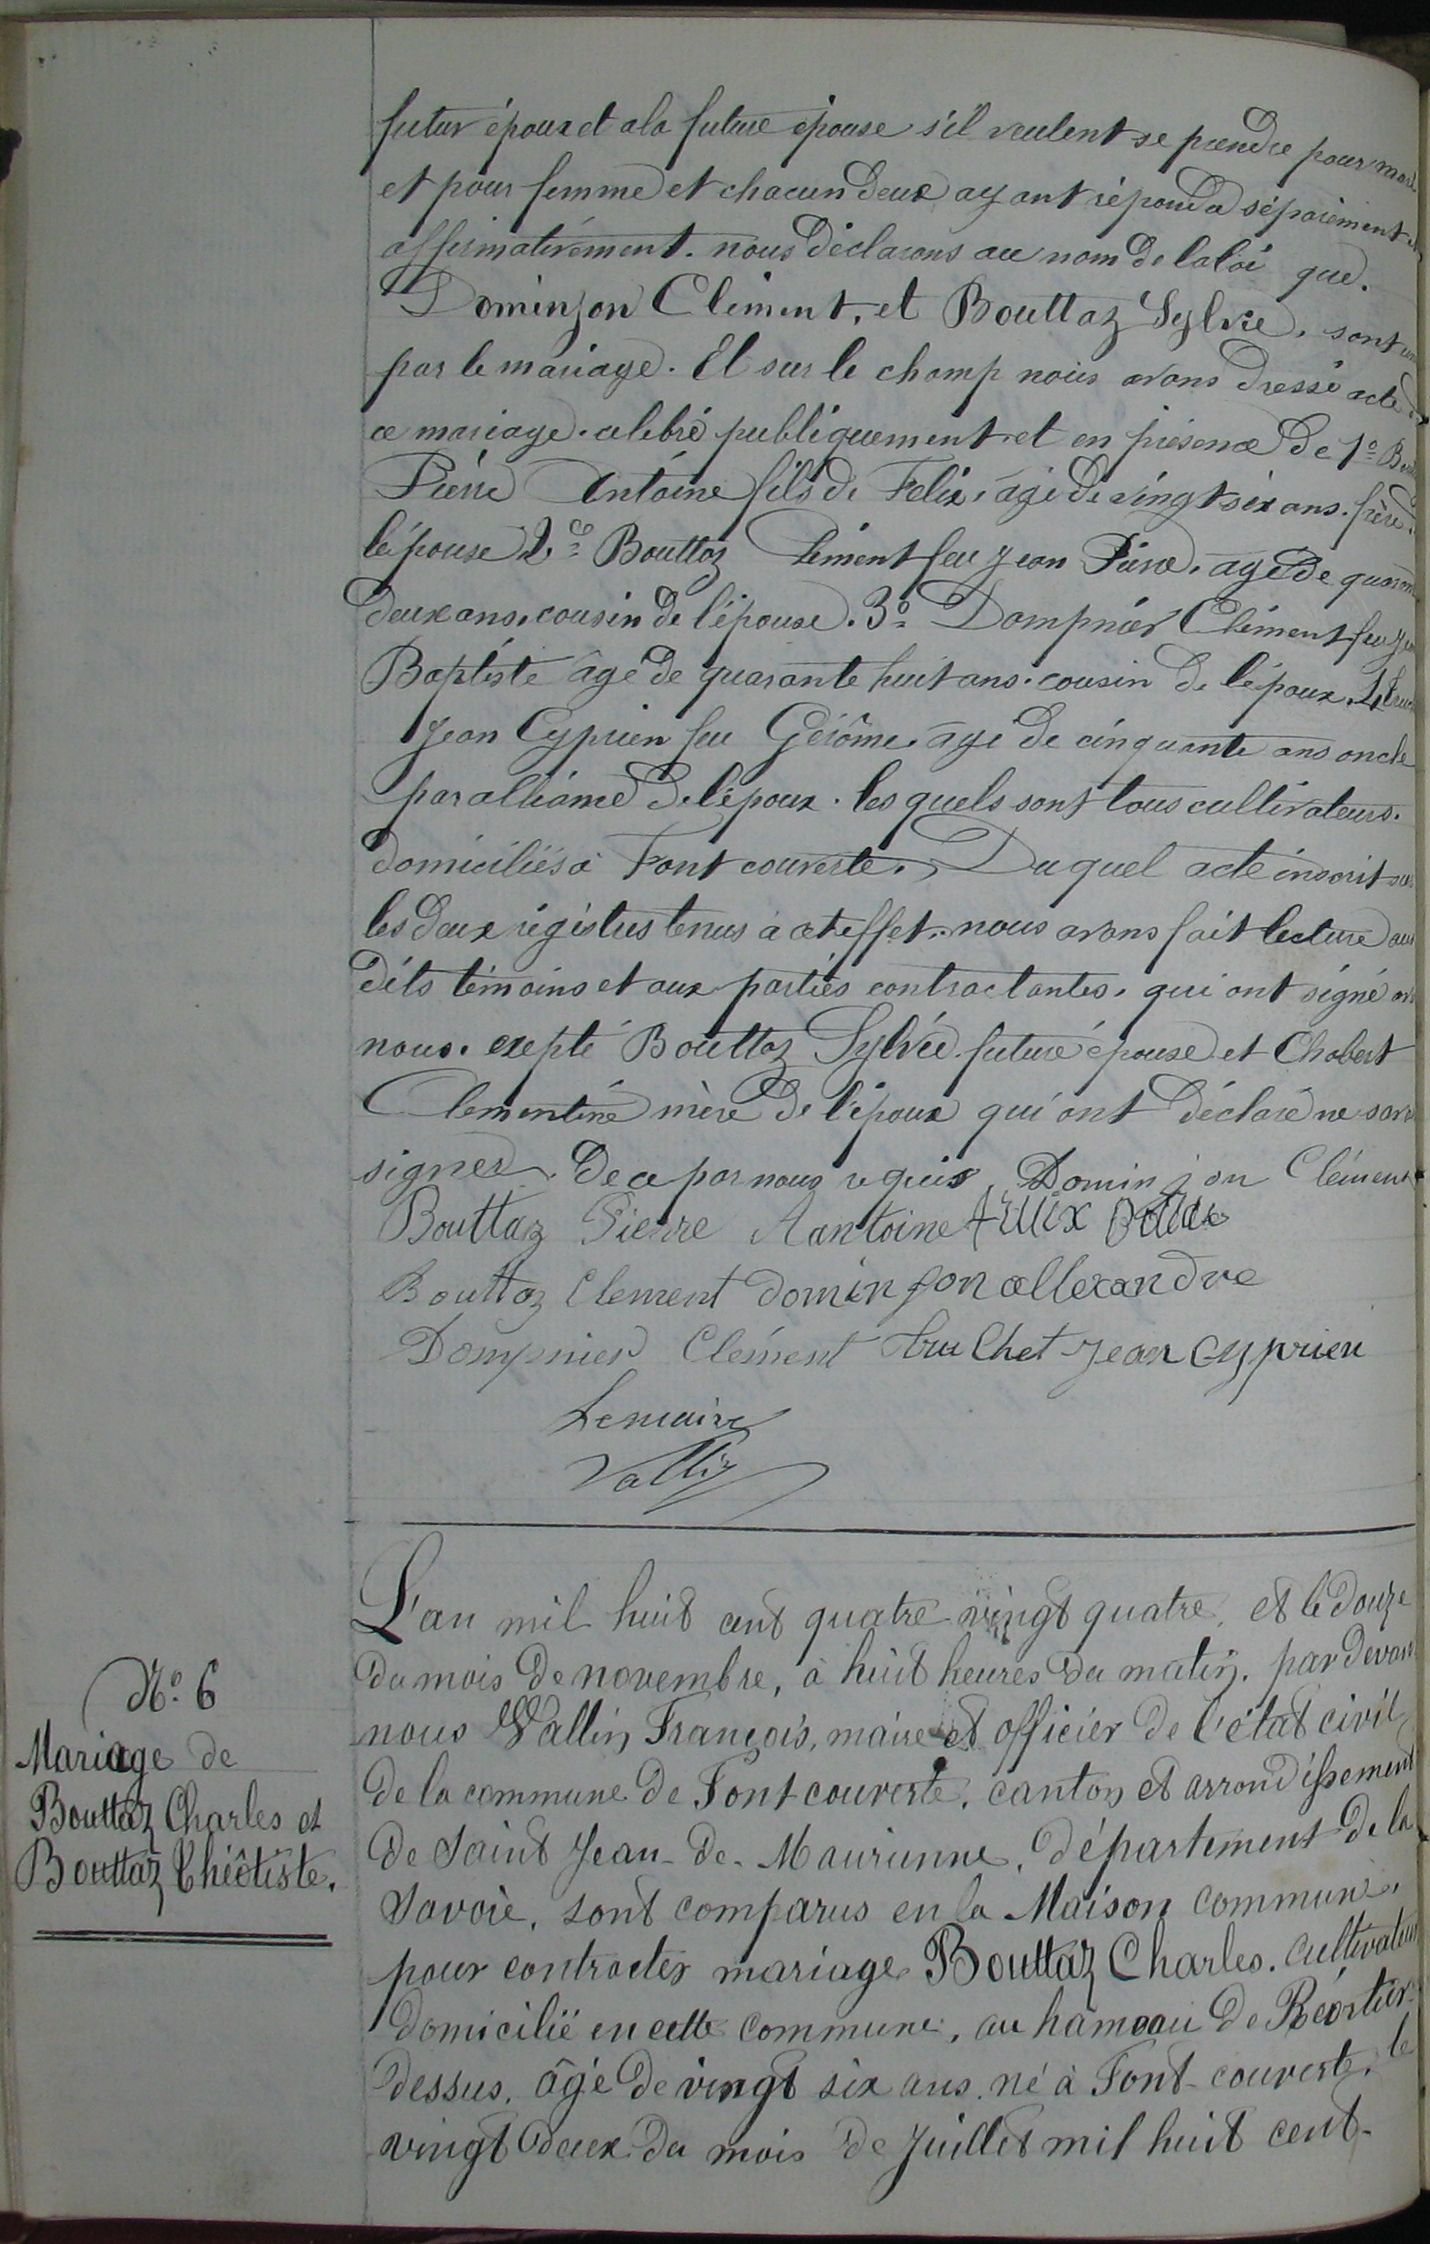 futur époux et a la future épouse s'il veulent se prendre pour mari
et pour femme et chacun deux ayant répondu séparément et
affirmativement. nous déclarons au nom de la loi que.
Dominjon Clément, et Bouttaz Sylvie, sont unis
par le mariage. Et sur le champ nous avons dressé acte de
ce mariage. celebré publiquement et en présence de 1o
Pierre Antoine fils de Felix, agé de vingt six ans. frère de
l'épouse 2o Bouttaz Clément feu Jean Pierre, agé de quarante
deux ans, cousin de l'épouse. 3o Dompnier Clément feu Jean
Baptiste agé de quarante huit ans. cousin de l'époux. 4 Truchet
Jean Cyprien feu Gérôme, agé de cinquante ans oncle
par alliance de l'époux. les quels sont tous cultivateurs.
domiciliés à Fontcouverte. Du quel acte inscrit sur
les deux régistres tenus à cet effet. nous avons fait lecture aux
dits témoins et aux parties contractantes. qui ont signé avec
nous. exepté Bouttaz Sylvie future épouse et Chabert
Clementine mère de l'époux qui ont déclaré ne savoir
signer. De ce par nous requis. Dominjon Clément
Bouttaz Pierre Aantoine Félix
Bouttaz Clement dominjon allexandre
Dompnier Clément truchet Jean Cyprien
Le maire
Vallin
L'an mil huit cent quatre vingt quatre, et le douze
du mois de novembre, à huit heures du matin. par devant
nous Vallin François, maire et officier de l'état civil
de la commune de Fontcouverte, canton et arrondissement
de Saint Jean-de-Maurienne, département de la
Savoie, sont comparus en la Maison commune,
pour contracter mariage Bouttaz Charles. cultivateur
domicilié en cette commune, au hameau de Réortier
dessus, âgé de vingt six ans, né à Font-couverte, le
vingt deux du mois de Juillet mil huit cent-
No. 6
Mariage de
Bouttaz Charles et
Bouttaz Théotiste.